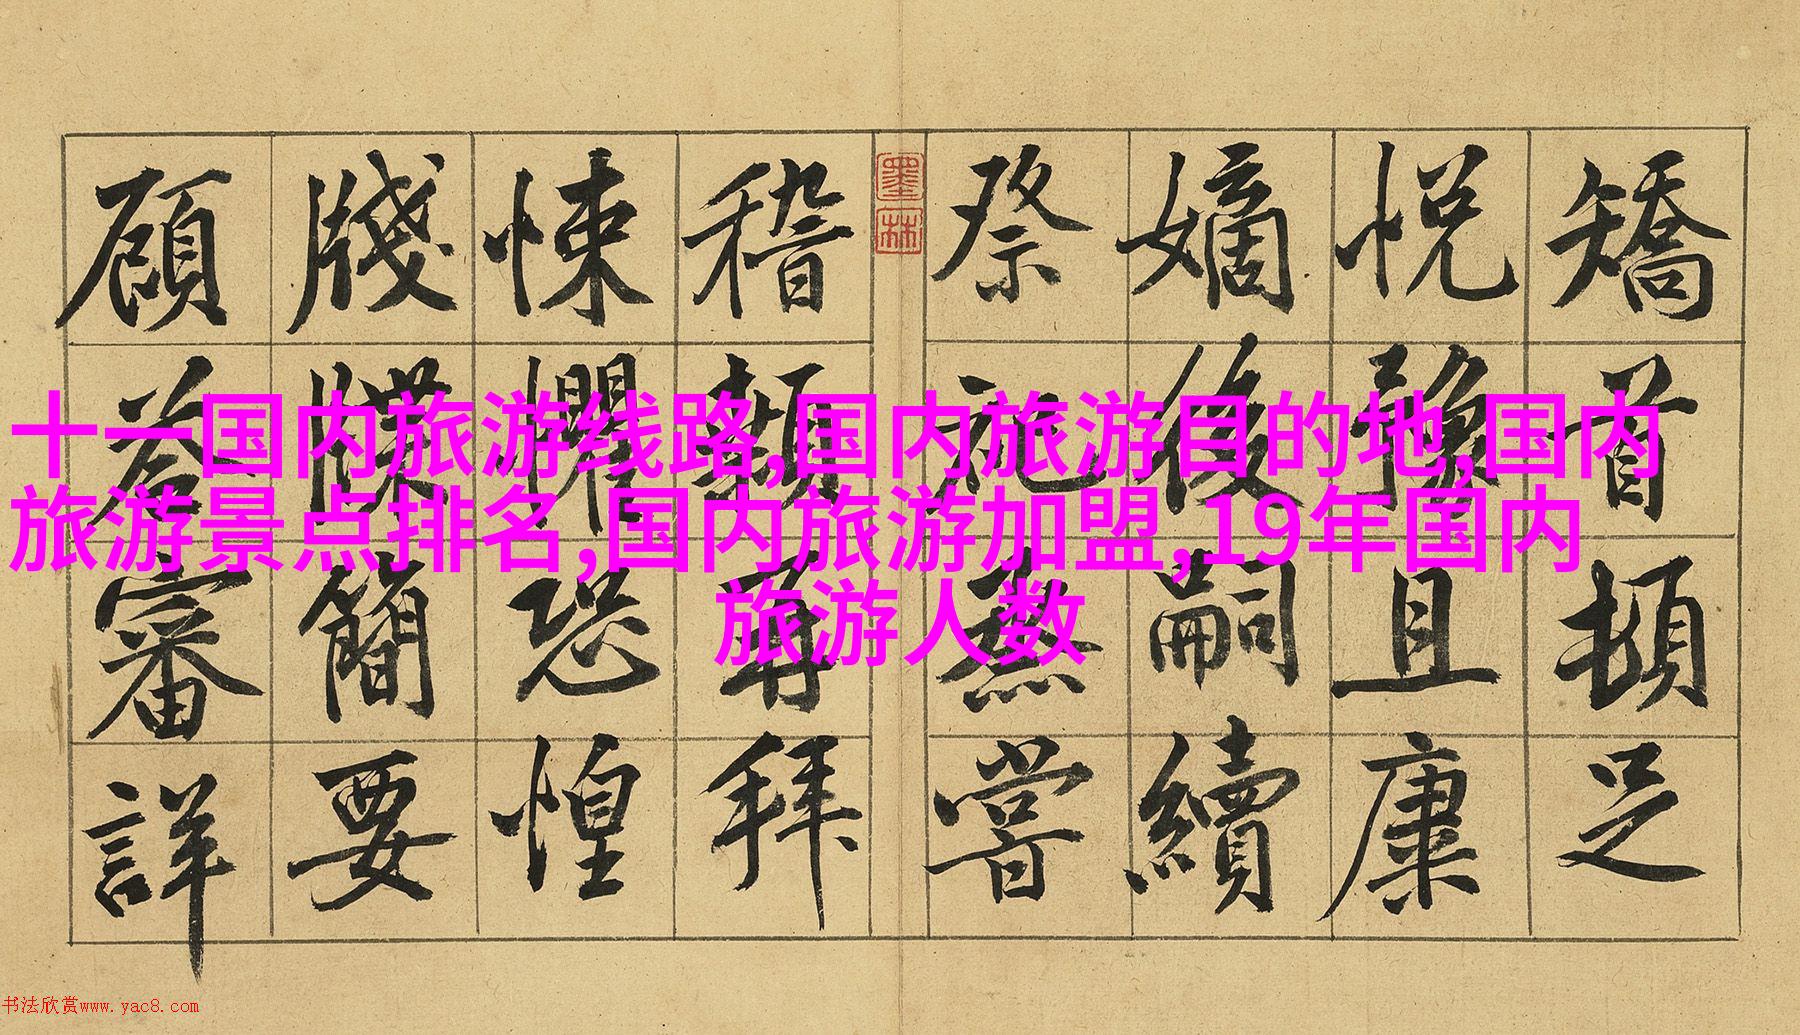 矯首頓足
悅豫且康
嫡後嗣續
祭祀烝嘗
墨林
稽顙再拜
悚懼恐惶
牋牒簡要
顧荅審詳
十一国内旅游线路,国内旅游目的地,国内
旅游景点排名,国内旅游加盟,19年国内
旅游人数
书法欣赏www.yac8.com